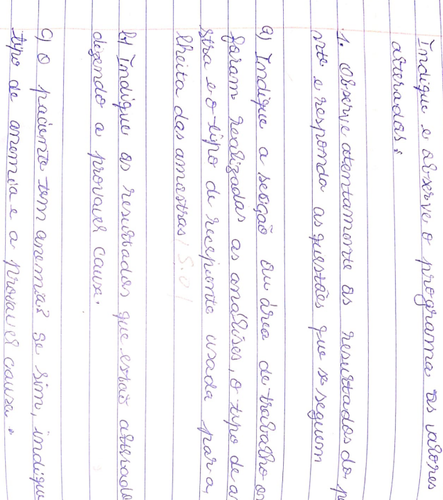 Indique e observe o programa os valores
alterados:
1. Observe atentamente os resultados do p
nte e responda as questões que se seguem
a) Indique a secção ou área de trabalho on
foram realizadas as análises, o tipo de a
stra e o tipo de recipiente usada para a
lheita das amostras; 5.0
b) Indique os resultados que estão alterado
dizendo a provavel causa.
c) O paciente tem anemia? Se sim, indique
tipo de anemia e a provavel causa.